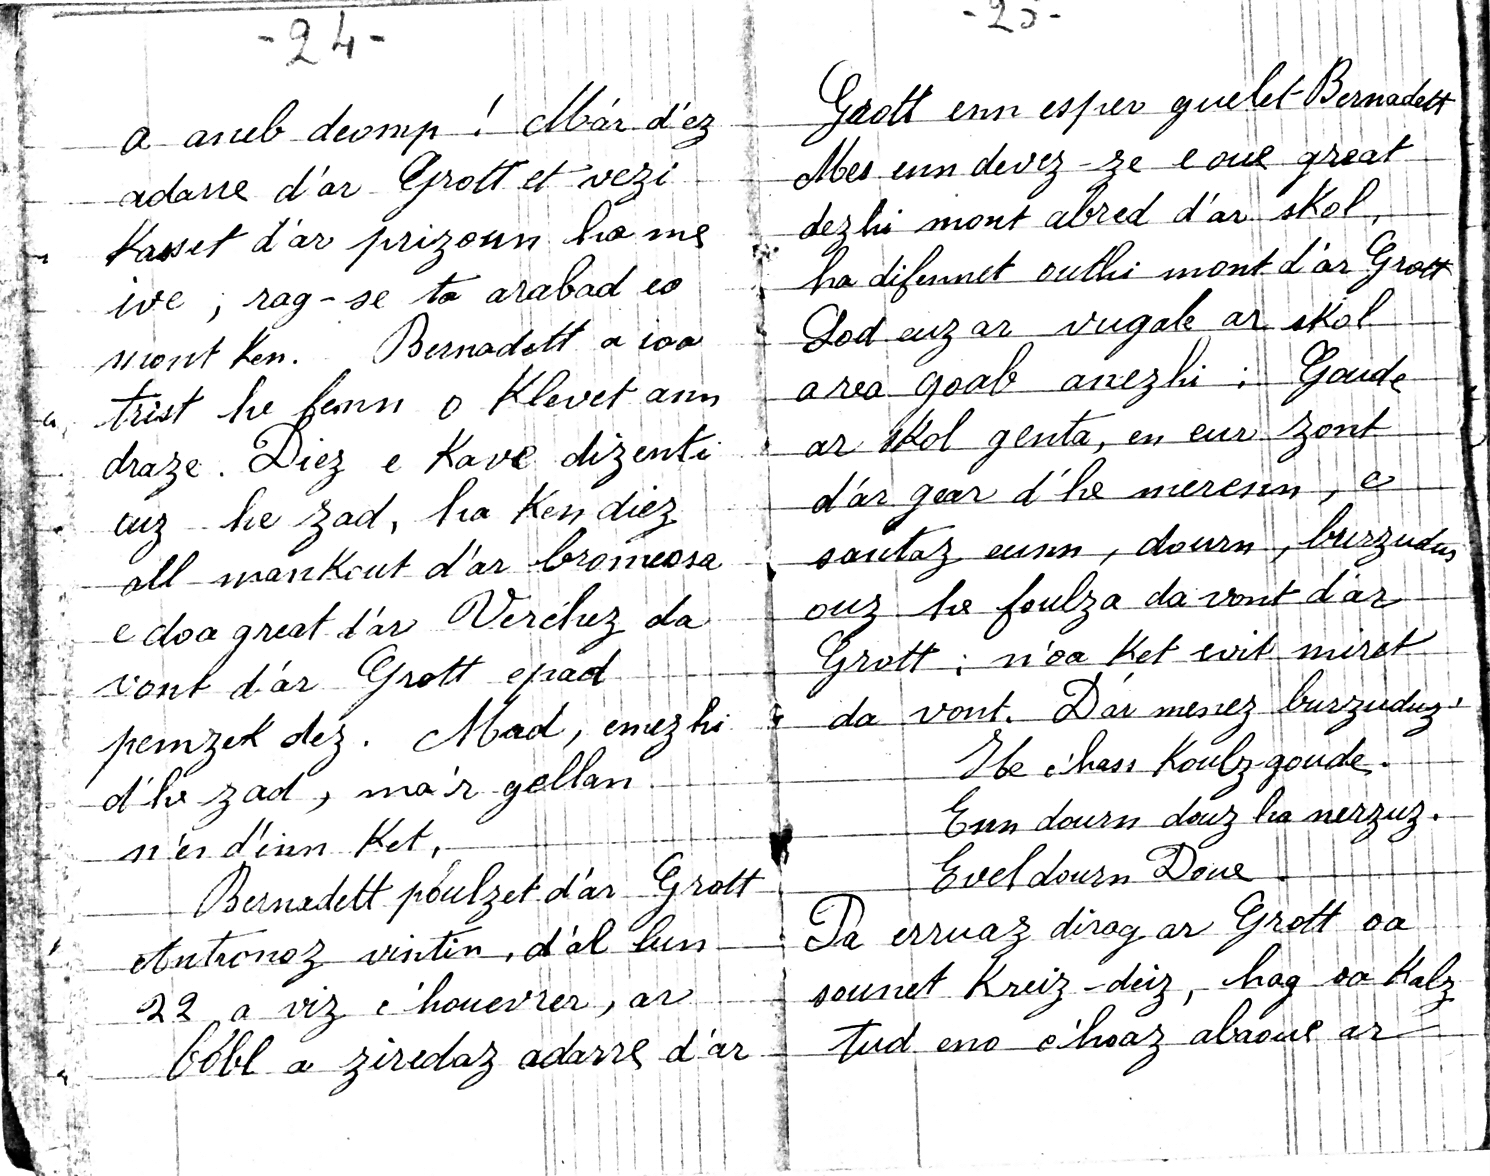 - 24 -
a aneb deomp ! Ma'r d'ez
adarre d'ar Grott et vezi
Kasset d'ar prizoun ha me
ive ; rag-se ta arabad eo
mont Ken. Bernadett a ioa
trist he fenn o Klevet ann
draze. Diez e Kave dizenti
euz he zad, ha Ken diez
all mankout d'ar bromeosa
e doa great d'ar Verc'hez da
vont d'ar Grott epad
pemzek dez. Mad, emezhi
d'he zad, ma'r gellan
n'en d'inn Ket.
Bernadett poulzet d'ar Grott
Antronoz vintin, d'al lun
22 a viz c'houevrer, ar
bobl a ziredaz adarre d'ar
- 25 -
Grott enn esper guelet Bernadett
Mes enn devez-ze e oue great
dezhi mont abred d'ar skol,
ha difennet outhi mont d'ar Grott
Lod euz ar vugale ar skol
a rea goab anezhi ; Goude
ar skol genta, en eur zont
d'ar gear d'he merenn, e
santaz eunn, dourn, burzudus
ouz he foulza da vont d'ar
Grott ; n'oa Ket evit miret
da vont. D'ar menez burzuduz'
He c'hass Koulzgoude.
Enn dourn douz ha nerzuz.
Evel dourn Doue.
Pa erruaz dirag ar Grott oa
sounet Kreiz-deiz, hag oa Kalz
tud eno c'hoaz abaoue ar